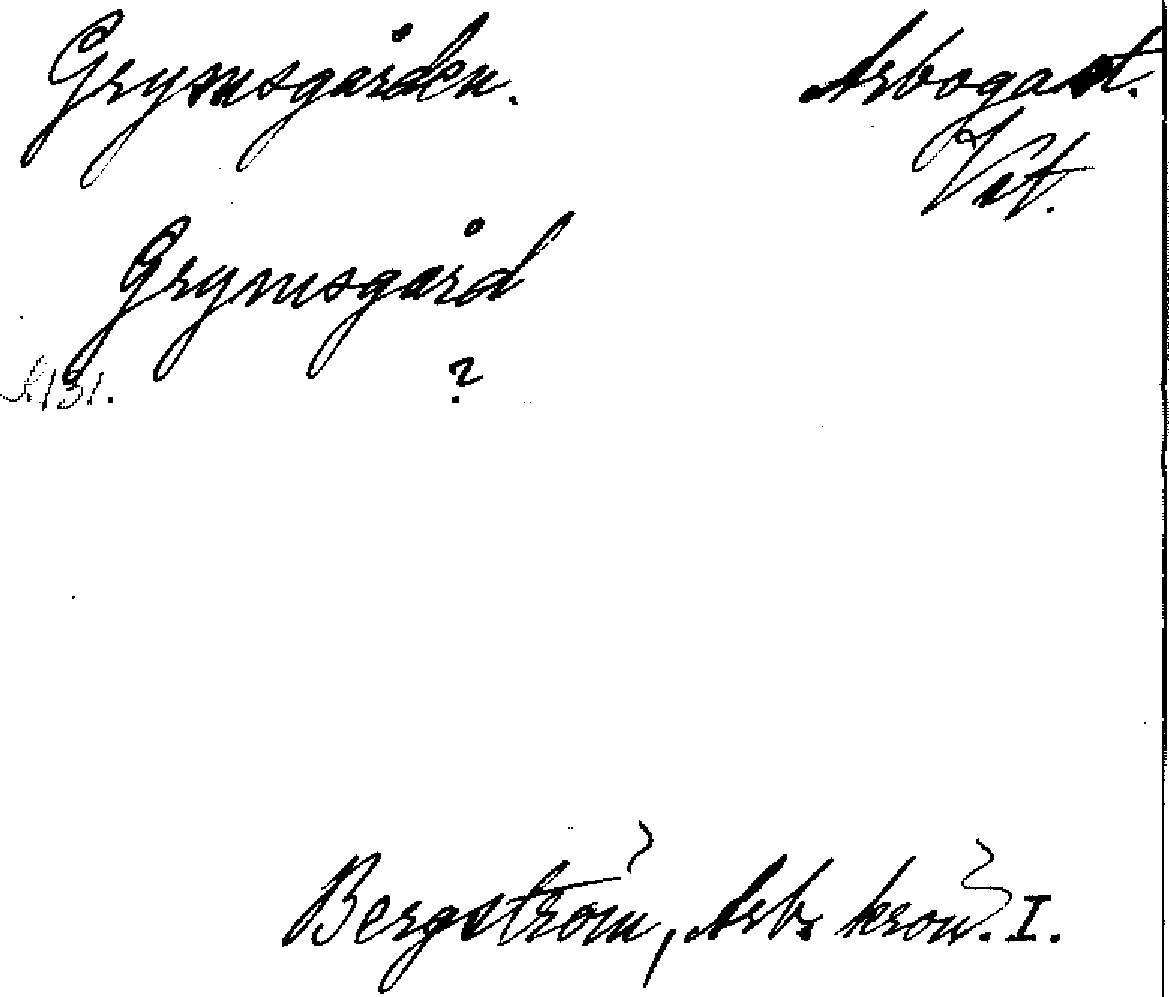 Grymsgården. Arboga st.
Vst.
Grymsgård
S. 131. ?
Bergström, Arb. krön. I.